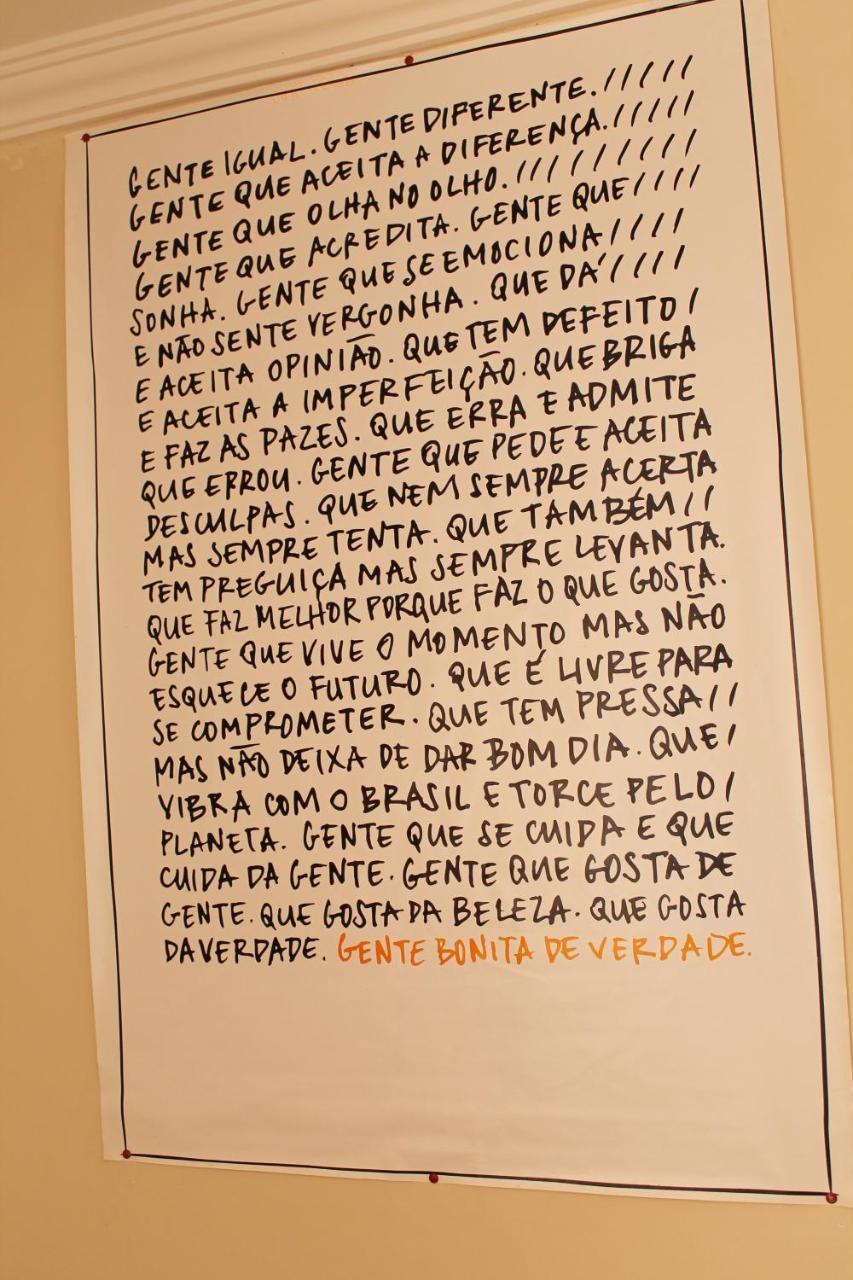 GENTE IGUAL. GENTE DIFERENTE./////
GENTE QUE ACEITA A DIFERENÇA./////
GENTE QUE OLHA NO OLHO./////////
GENTE QUE ACREDITA. GENTE QUE////
SONHA. GENTE QUE SE EMOCIONA////
E NÃO SENTE VERGONHA. QUE DÁ////
E ACEITA OPINIÃO. QUE TEM DEFEITO/
E ACEITA A IMPERFEIÇÃO. QUE BRIGA
E FAZ AS PAZES. QUE ERRA E ADMITE
QUE ERROU. GENTE QUE PEDE E ACEITA
DESCULPAS. QUE NEM SEMPRE ACERTA
MAS SEMPRE TENTA. QUE TAMBÉM//
TEM PREGUIÇA MAS SEMPRE LEVANTA.
QUE FAZ MELHOR PORQUE FAZ O QUE GOSTA.
GENTE QUE VIVE O MOMENTO MAS NÃO
ESQUECE O FUTURO. QUE É LIVRE PARA
SE COMPROMETER. QUE TEM PRESSA//
MAS NÃO DEIXA DE DAR BOM DIA. QUE/
VIBRA COM O BRASIL E TORCE PELO/
PLANETA. GENTE QUE SE CUIDA E QUE
CUIDA DA GENTE. GENTE QUE GOSTA DE
GENTE. QUE GOSTA DA BELEZA. QUE GOSTA
DA VERDADE. GENTE BONITA DE VERDADE.